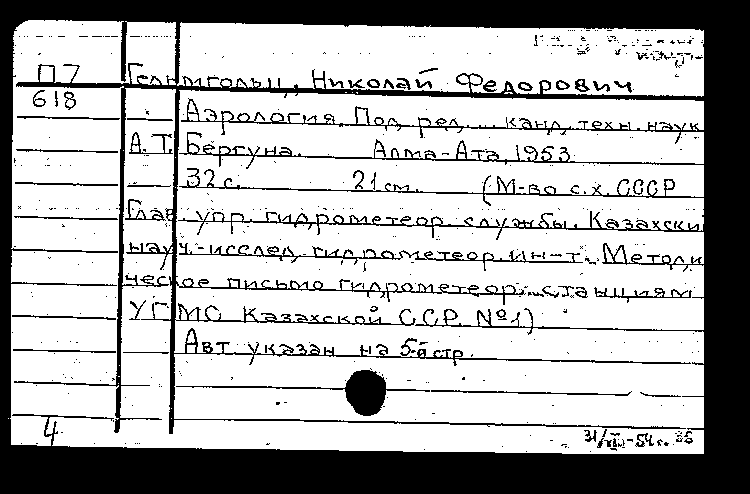 П7 Гельмгольц, Николай Федорович
618
Аэрология. Под ред. ... канд. техн. наук
А. Т. Бергуна. Алма-Ата, 1953.
32 с. 21 см. (М-во с.х. СССР
Глав. упр. гидрометеор. службы. Казахский
науч.-исслед. гидрометеор. ин-т. Методи
ческое письмо гидрометеор. станциям
УГМС Казахской ССР. №1)
Авт. указан на 5-й стр.
4